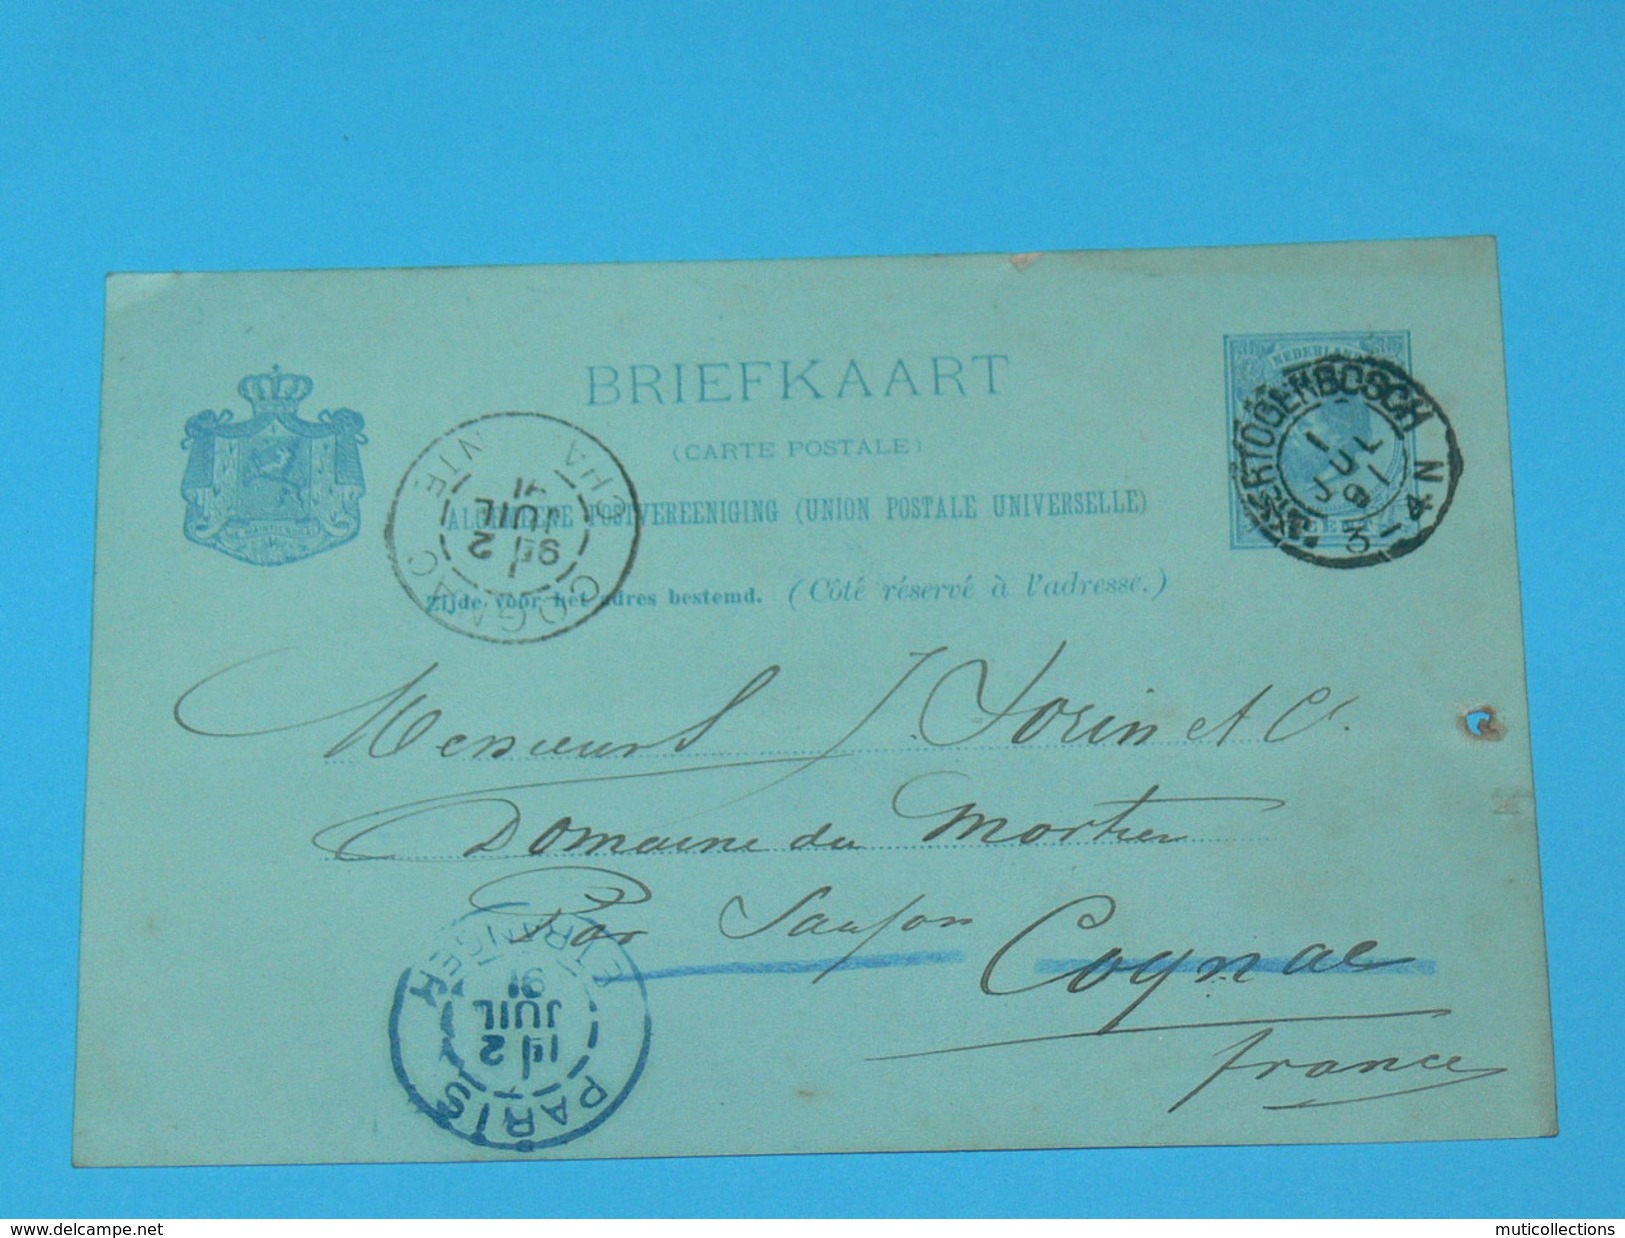 BRIEFKAART
(CARTE POSTALE)
ALGEMEENE POSTVEREENIGING (UNION POSTALE UNIVERSELLE)
Zijde voor het adres bestemd. (Côté réservé à l'adresse.)
NEDERLAND
'S HERTOGENBOSCH
1 JUL 91
3-4 N
COGNAC
CHA VTE
2
JUIL
91
Messieurs J. Lorin et Cº.
Domaine du Mortier
Par
Cognac
france
PARIS ETRANGER
2
JUIL
91
www.delcampe.net
muticollections